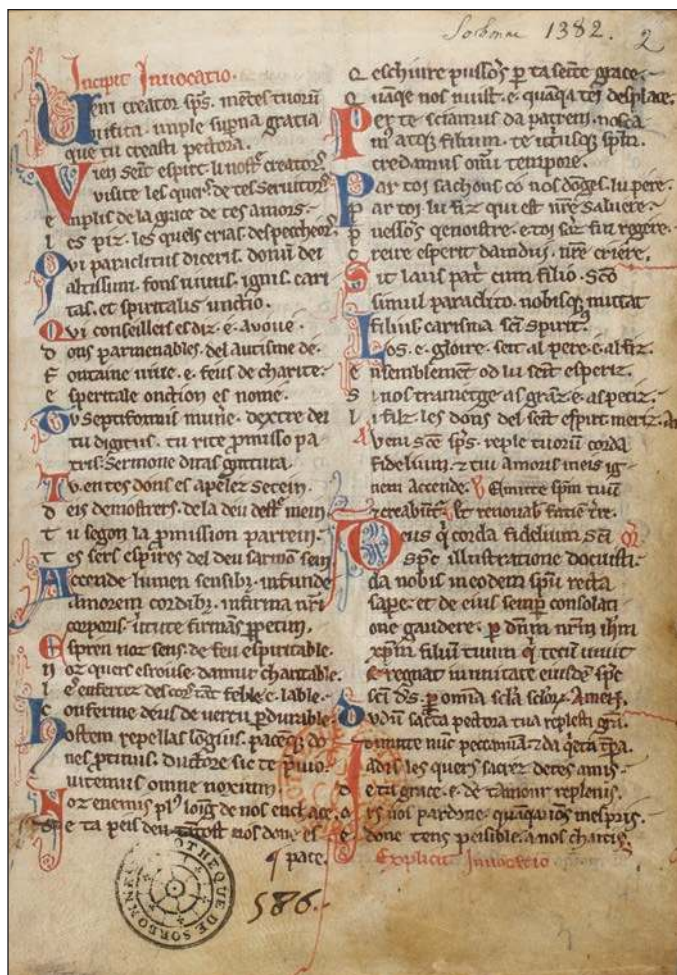 Sorbonne 1382. 2
Incipit Inuocatio.
Veni creator sp̄s. mētes tuoꝝ
uisita. imple sup̄na gratia
que tu creasti pectora.
Vien seīt espirt. li nostr᷒ creatorꝰ
uisite les querꝰ de tes seruitorꝰ
emplis de la grace de tes amors.
les piz. les quels crias. des pecheorꝰ
Qvi paraclitus diceris. donū dei
altissimi. fons uiuus. ignis. cari
tas. et spiritalis unctio.
Qvi conseilleꝛ es diz. e. auoué.
dons parmenables. del autisme de.
Fontaine uiue. e. feus de charite.
esperitale onction es nome.
Tv septiformis mune᷒. dextre dei
tu digitus. tu rite p̄misso pa
tris. Sermone ditas guttura.
Tv. en tes dons es apelez Setein.
deis demostrers. de la deu dest᷒ mein
tu segon la p̄mission patrein.
tes sers espires del deu sarmon sein
Accende lumen sensibꝫ. infunde
amorem cordibꝫ. infirma nr̄i
corporis. uirtute firmās ꝑpetim.
Espren noz sens. de feu espiritable.
noz quers esrouse. damur charitable.
le enfertez del cors tāt feble. e. lable.
conferme deus de uertu pdurable.
hostem repellas lōgius. pacēqꝫ do
nes p̄tinus. Ductore sic te p̄uio.
uitemus omne noxium.
Noz enemis plꝰ lōīg de nos enchace.
e ta peis deu tātost nos done. es
pace.
586.
BIBLIOTHEQUE DE SORBONNE
eschiure puissōs p ta seīte grace.
quāqe nos nuist. e. quāq̄ a tei desplace.
Per te sciamus da patrem. nosca
mꝰ atqꝫ filium. te utriusqꝫ sp̄m.
credamus omī tempore.
Par toi sachons co nos dōges. lu pere.
par toi. lu fiz qui est nr̄e saluere.
puessōs qenoistre. e toi
creire esperit damdui. nr̄e criere.
Sit laus pat᷒ cum filio. sc̄o
simul paraclito. nobisqꝫ mittat
filius carisma sc̄i spiritꝰ.
Los. e. gloire. seit al pere. e. al fiz.
ensemblement od lu seīt esperiz.
si nos trametge as grāz. e. as petiz.
li filz. les dons del seīt esp̄irt meriz. Am̄
Veni sc̄e sp̄s. reple tuoꝝ corda
fidelium. ⁊ tui amoris in eis ig
nem accende. ℣ Emitte sp̄m tuū
⁊ creabūt᷒. ℟ Et renouab᷒ faciē tr̄e.
Deus q̄ corda fidelium sc̄i
sp̄c illustratione docuisti.
da nobis in eodem sp̄u recta
sapē. et de eius semp̄ consolati
one gaudere. ꝑ dn̄m nr̄m ih̄m
xp̄m filiū tuum q̄ tecū uiuit
⁊ regnat in unitate eiusdē sp̄c
sc̄i. d̄s. ꝑ omnia sc̄la sc̄loꝝ. Amen.
Dvdū sac̄ta pectora tua replesti gr̄a.
dimitte nūc peccamīa. ⁊ da q̄eta tp̄ra.
Iadis les quers sacrez de tes amis.
de tu grace. e. de tamour replenis.
ors nos pardone. quāqa iōs mespris.
e done tens peisible. a nos chaitis.
Explicit Inuocatio